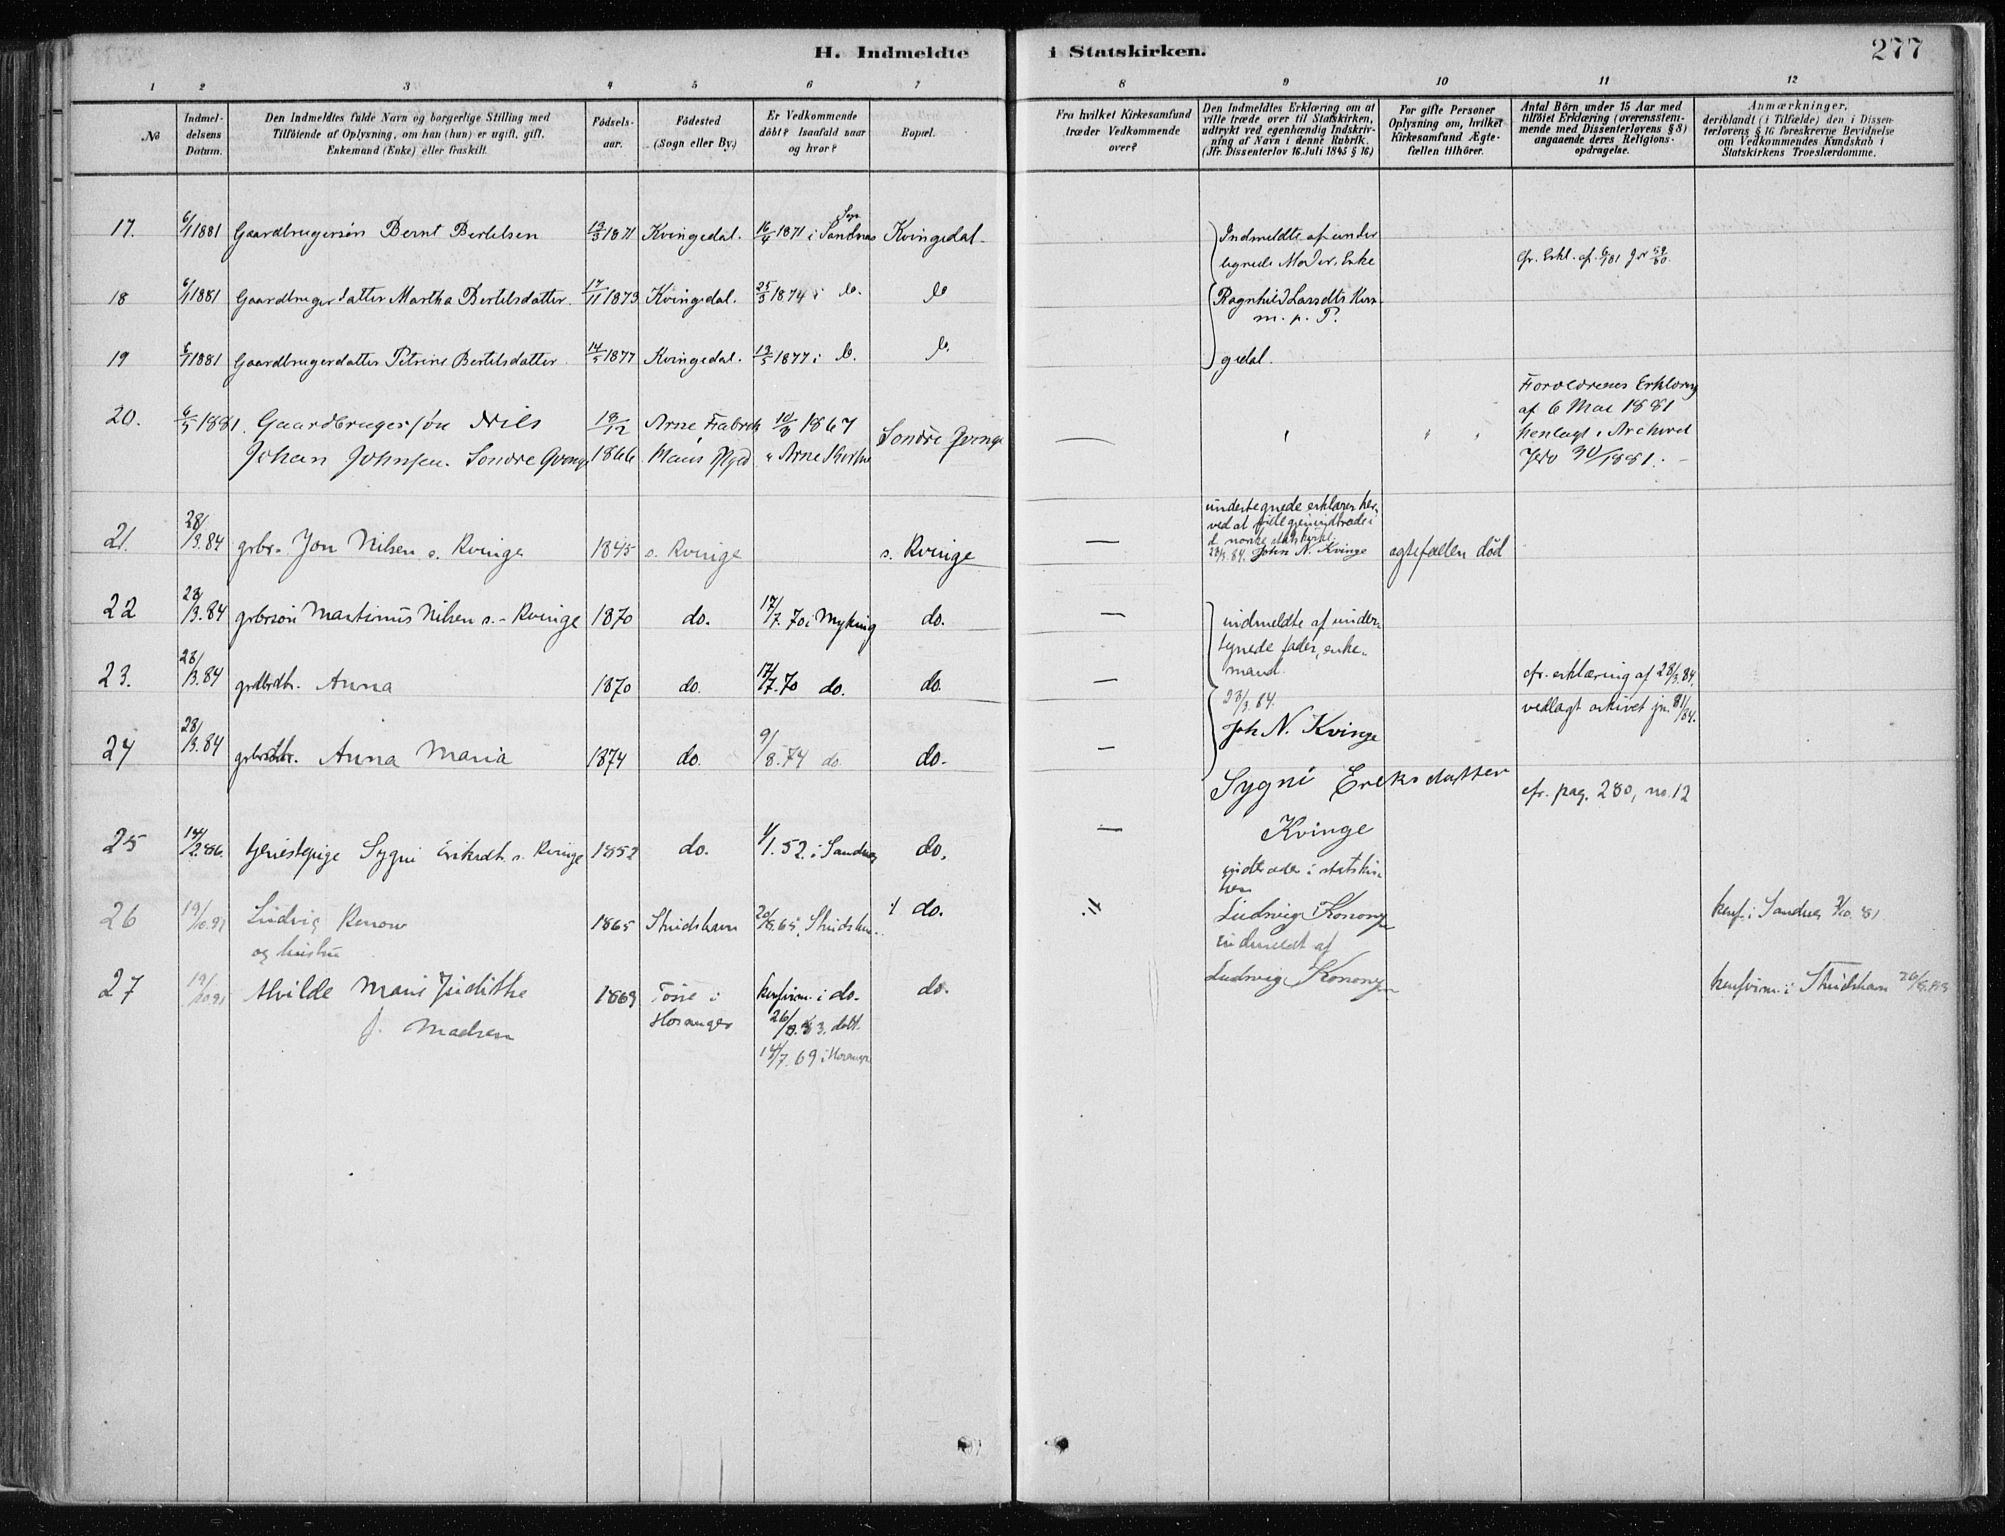 H. Indmeldte i Statskirken.
277
1 2 3 4 5 6 7 8 9 10 11 12
No
Indmel-
delsens
Datum.
Den Indmeldtes fulde Navn og borgerlige Stilling med
Tilföiende af Oplysning, om han (hun) er ugift, gift,
Enkemand (Enke) eller fraskilt.
Födsels-
aar.
Födested
(Sogn eller By.)
Er Vedkommende
döbt? Isaafald naar
og hvor?
Bopæl.
Fra hvilket Kirkesamfund
træder Vedkommende
over?
Den Indmeldtes Erklæring om at
ville træde over til Statskirken,
udtrykt ved egenhændig Indskriv-
ning af Navn i denne Rubrik.
(Jfr. Dissenterlov 16 Juli 1845 § 16)
For gifte Personer
Oplysning om, hvilket
Kirkesamfund Ægte-
fællen tilhörer.
Antal Börn under 15 Aar med
tilföiet Erklæring (overensstem-
mende med Dissenterlovens § 8)
angaaende deres Religions-
opdragelse.
Anmærkninger,
deriblandt (i Tilfælde) den i Dissen-
terlovens § 16 foreskrevne Bevidnelse
om Vedkommendes Kundskab i
Statskirkens Troeslærdomme.
17. 6/1 1881 Gaardbrugersøn Bernt Bertelsen 19/3 1871 Kvingedal. 16/4 1871 i Sandnæs Kvingedal
Indmeldte af under
tegnede Moder, Enke
cfr. Erkl. af 6/1 81
18 6/1 1881 Gaardbrugerdatter Martha Bertelsdatter. 17/11 1873 Kvingedal. 25/3 1874 i do. do
Ragnhild Larsdtr Kvin-
m. p. P.
19 6/1 1881 Gaardbrugerdatter Petrine Bertelsdatter 14/5 1877 Kvingedal. 19/5 1877 i do. do.
gedal.
20. 6/5 1881. Gaardbrugersøn Nils 19/12 Arne Fabrik 10/3 1867 Søndre Qvinge
Johan Johnsen. Søndre Qvinge 1866 Arne Kirke
Forældrenes Erklæring
af 6 Mai 1881
henlagt i Archivet
21. 28/3.84 grbr. Jon Nilsen s. Kvinge 1845 s. Kvinge s. Kvinge —
undertegnede erklærer her-
ved at ville gjenindtræde i
d. norske statskirke.
28/3.84. John N. Kvinge
ægtefællen död
22 28/3.84 grbrsön Martinus Nilsen s. Kvinge 1870 do. 17/7.70 i Myking do. —
indmeldte af under-
tegnede fader, enke-
mand.
23. 28/3.84 grdbrdtr. Anna 1870 do. 17/7.70 do. do. —
28/3.84.
cfr. erklæring af 28/3.84,
vedlagt arkivet jn. 81/84.
24 28/3.84 grbrdtr. Anna Maria 1874 do. 9/8.74 do. do. —
Joh N. Kvinge
Sygni Ereksdatter
Kvinge
cfr. pag. 280, no. 12
25 14/2.86. tjenestepige Sygni Eriksdt. s. Kvinge 1852 do. 1/1.52. i Sandnes do. —
indtræder i statskir-
ken
26 19/10.91 Ludvig Konow 1865 Strudshavn do.
og hustru
Ludwig Konow
indmeldt af
konf. i Sandnes
27 19/10 91 Alvilde Marie Judithe 1869 Tosse i konfirm. i do. do.
f. Madsen Hosanger 26/8.83. døbt
14/7.69 i Hosanger
Ludwig Konow
konfirm. i Strudshavn 26/8.83